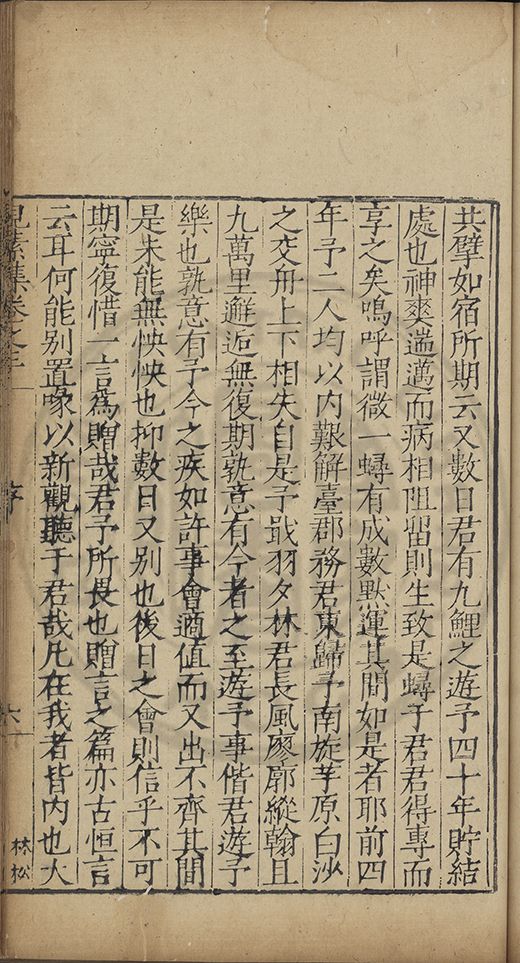 共擘如宿所期云又數日君有九鯉之遊予四十年貯結
處也神爽遄邁而病相阻留則生致是蟳于君君得專而
享之矣嗚呼謂微一蟳有成數默運其間如是者耶前四
年予二人均以内艱解臺郡務君東歸予南旋莩原白沙
之交舟上下相失自是予戢羽夕林君長風廖廓縱翰且
九萬里邂逅無復期孰意有今者之至遊予事偕君遊予
樂也孰意有予今之疾如許事會適值而又出不齊其間
是未能無怏怏也抑數日又別也後日之會則信乎不可
期寧復惜一言爲贈哉君予所畏也贈言之篇亦古恒言
云耳何能別置喙以新觀聽于君哉凡在我者皆内也大
見素集卷之三 序 六 林松